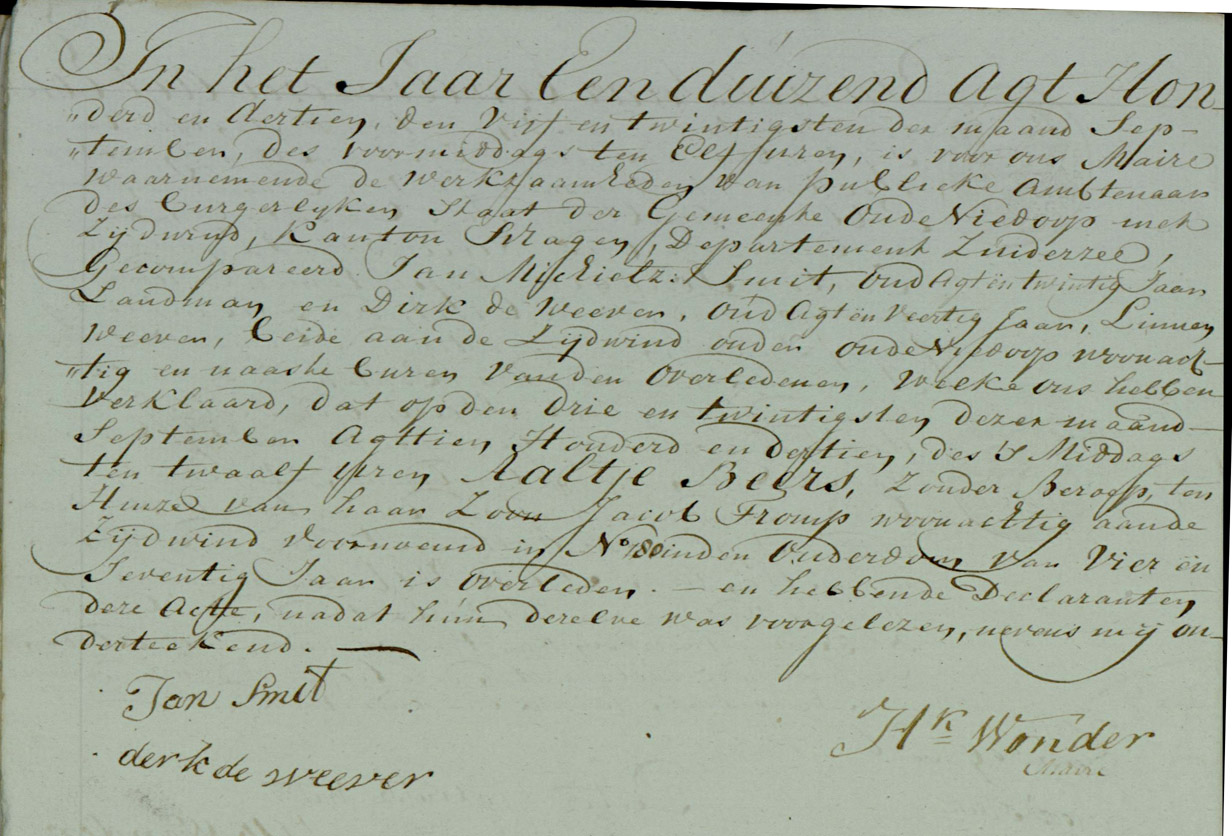 In het Jaar Een duizend Agt Hon
"derd en dertien, den Vijf en twintigsten der maand Sep-
"tember, des voormiddags ten Elf uren, is voor ons Maire
waarnemende de werkzaamheden van publieke Ambtenaar
des burgerlyken Staat der Gemeente Oude Niedorp met
Zijdwind, Kanton Schagen, Departement Zuiderzee,
Gecompareerd Jan Michielsz: Smit, oud Agt en twintig Jaar
Landman en Dirk de Weever, oud Agt en Veertig Jaar, Linnen
weever, beide aan de Zijdwind onder Oude Niedorp woonach-
"tig en naaste buren van den Overledenen, welke ons hebben
Verklaard, dat op den drie en twintigsten dezer maand
September Agttien Honderd en dertien, des 's Middags
ten twaalf uren Aaltje Beers, Zonder Beroep, ten
Huize van haar Zoon Jacob Tromp woonachtig aande
Zijdwind voornoemd in No 180 inden Ouderdom van Vier en
Seventig Jaar is overleden. — en hebbende Declaranten
deze Acte, nadat hun dezelve was voorgelezen, nevens mij on-
derteekend. —
Jan Smit
derk de weever
Hk Wonder
Maire